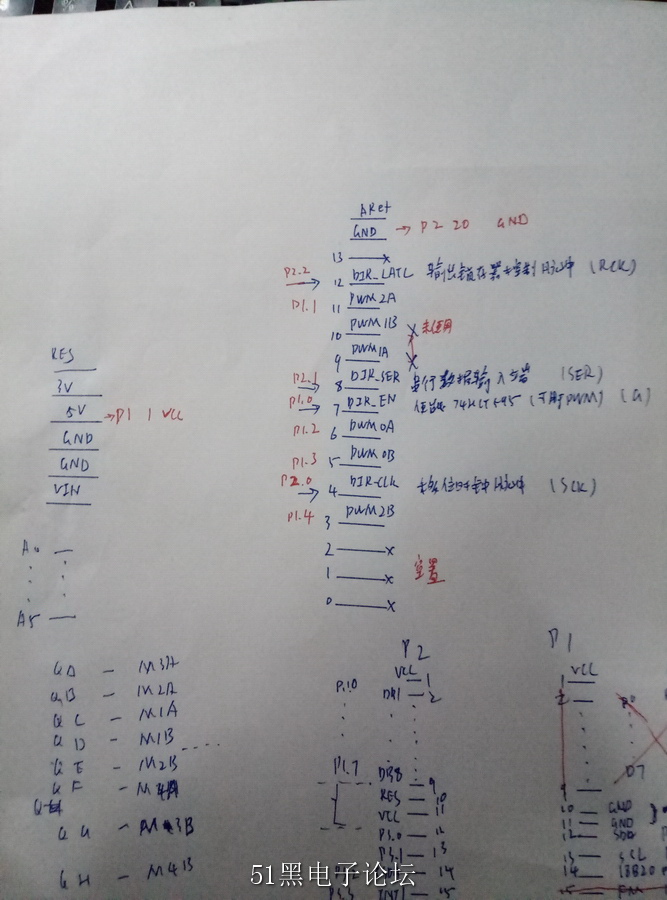 ARef
GND → P2 20 GND
13
P2.2 12 DIR_LATC 输出锁存器控制脉冲 (RCK)
P1.1 11 PWM2A
10 PWM1B 未使用
9 PWM1A
P2.1 8 DIR_SER 串行数据输入端 (SER)
P1.0 7 DIR_EN 使能 74HCT595 (可用PWM) (G)
P1.2 6 PWM0A
P1.3 5 PWM0B
P2.0 4 DIR-CLK 移位时钟脉冲 (SCK)
P1.4 3 PWM2B
2
1 空置
0
RES
3V
5V → P1 1 VCC
GND
GND
VIN
A0
A5
QA - M3A
QB - M2A
QC - M1A
QD - M1B
QE - M2B
QF -
QG - M3B
QH - M4B
P2
VCC 1
P1.0 DB1 2
P1.7 DB8 9
RES 10
VCC 11
P3.0 12
P3.1 13
14
P3.3 INT1 15
P1
1 VCC
2
D7
9
10 GND
11 GND
12 SDA
13 SCL
14 18B20
15
51黑电子论坛